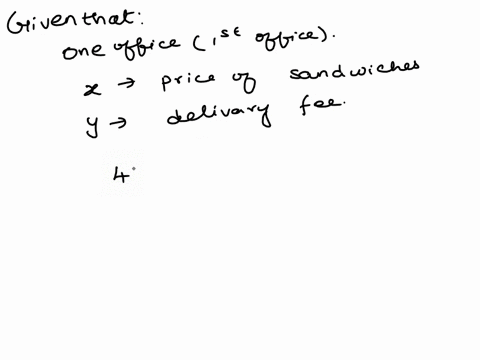 Given that:
one office (1st office).
x → price of sandwiches
y → delivary fee.
4